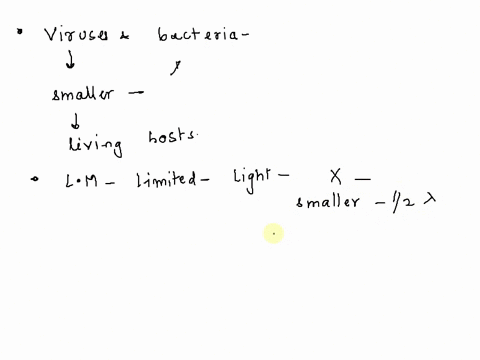 • Viruses & bacteria -
↓ ↗
smaller -
↓
living hosts.
• L.M - limited - light - X -
smaller - 1/2 λ